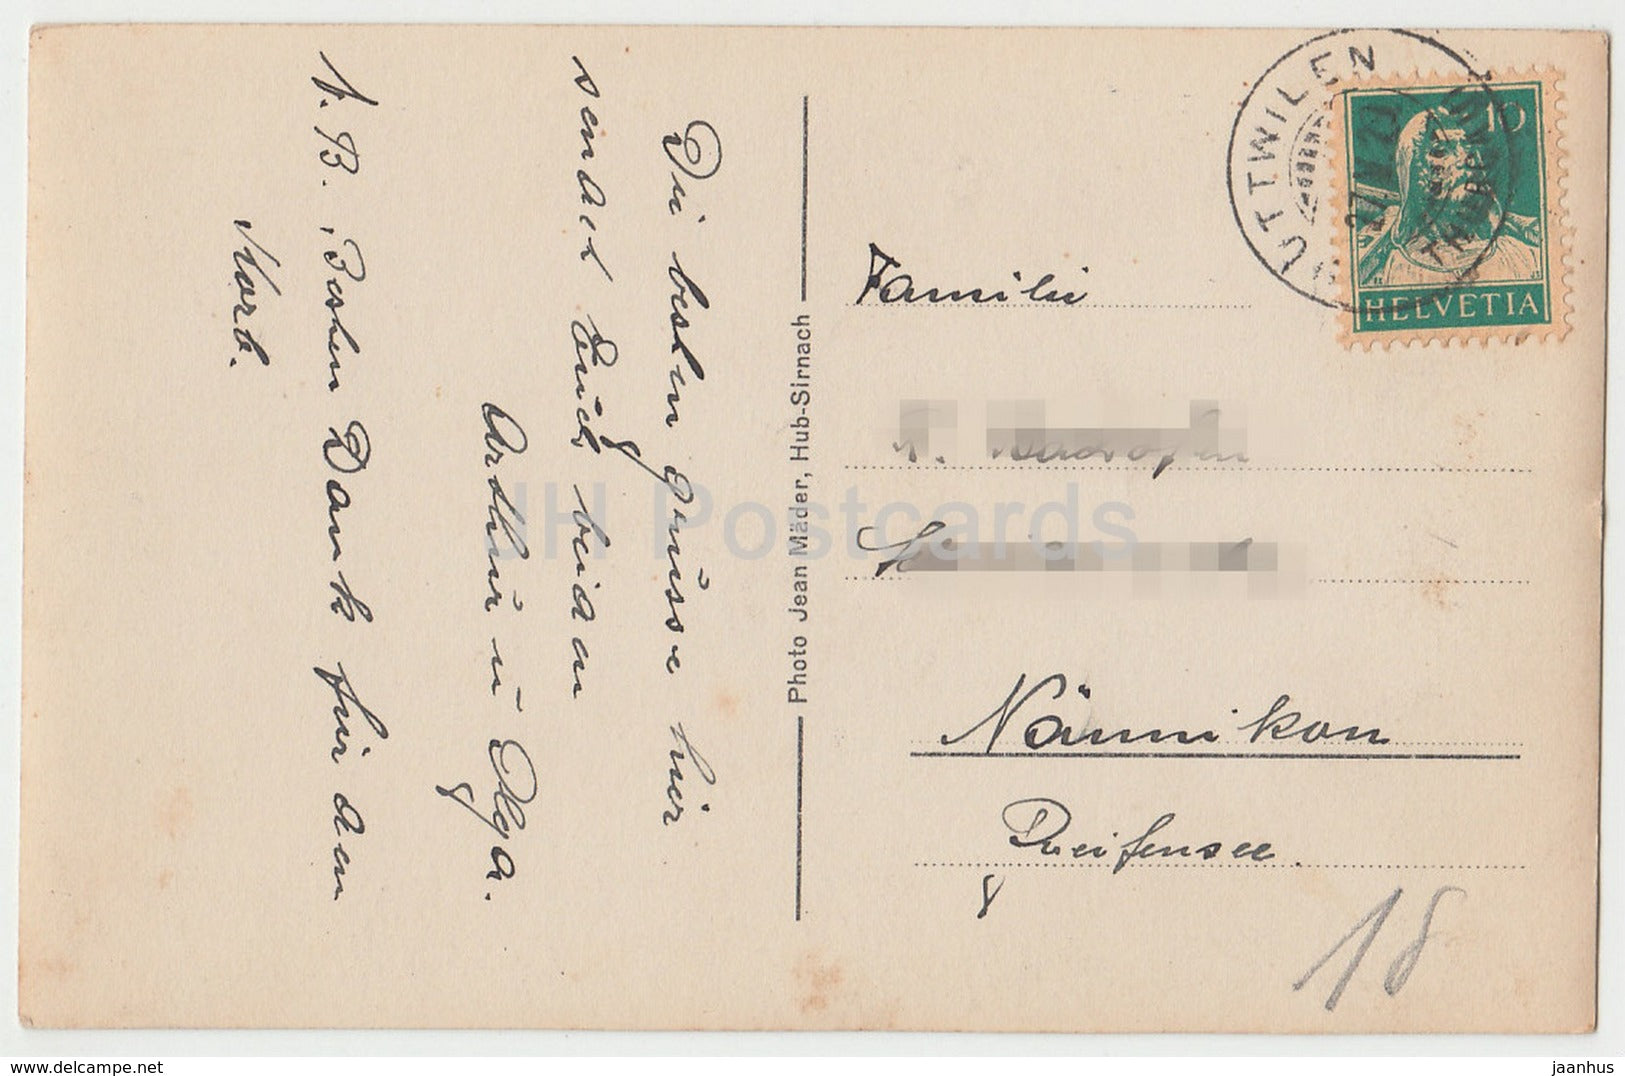 Die besten Grüsse hier
sendet Euch beiden
Arthur u Olga.
N. B. Besten Dank für den
Korb.
Photo Jean Mäder, Hub-Sirnach
HÜTTWILEN
27
10
HELVETIA
Familie
Nännikon
Greifensee.
18
JH Postcards
jaanhus